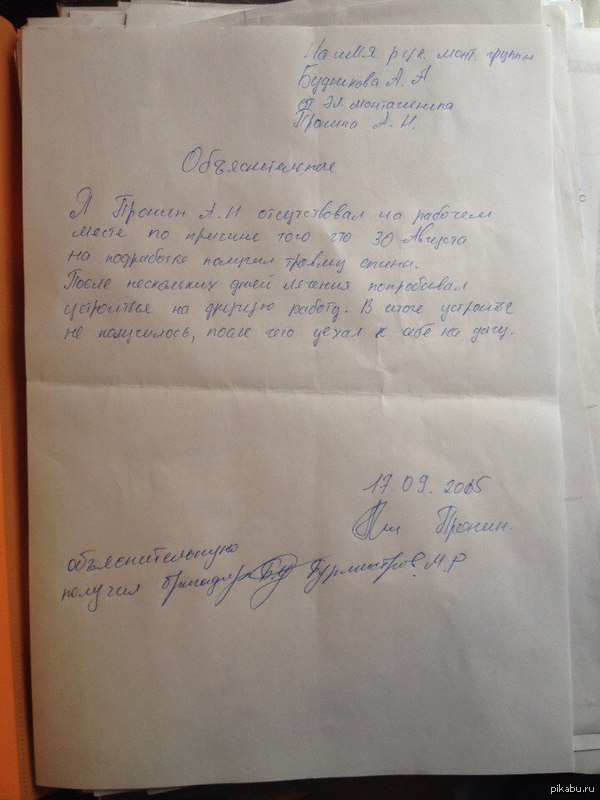 На имя рук. монт. группы
Будникова А. А
от Эл. монтажника
Пронина А. Н.
Объяснительная
Я Пронин А. Н отсутствовал на рабочем
месте по причине того что 30 Августа
на подработке получил травму спины.
После нескольких дней лечения попробовал
устроится на другую работу. В итоге устроится
не получилось, после чего уехал к себе на дачу.
17.09.2015
Пронин.
объяснительную
получил бригадир Бурмистров. М. Р
pikabu.ru